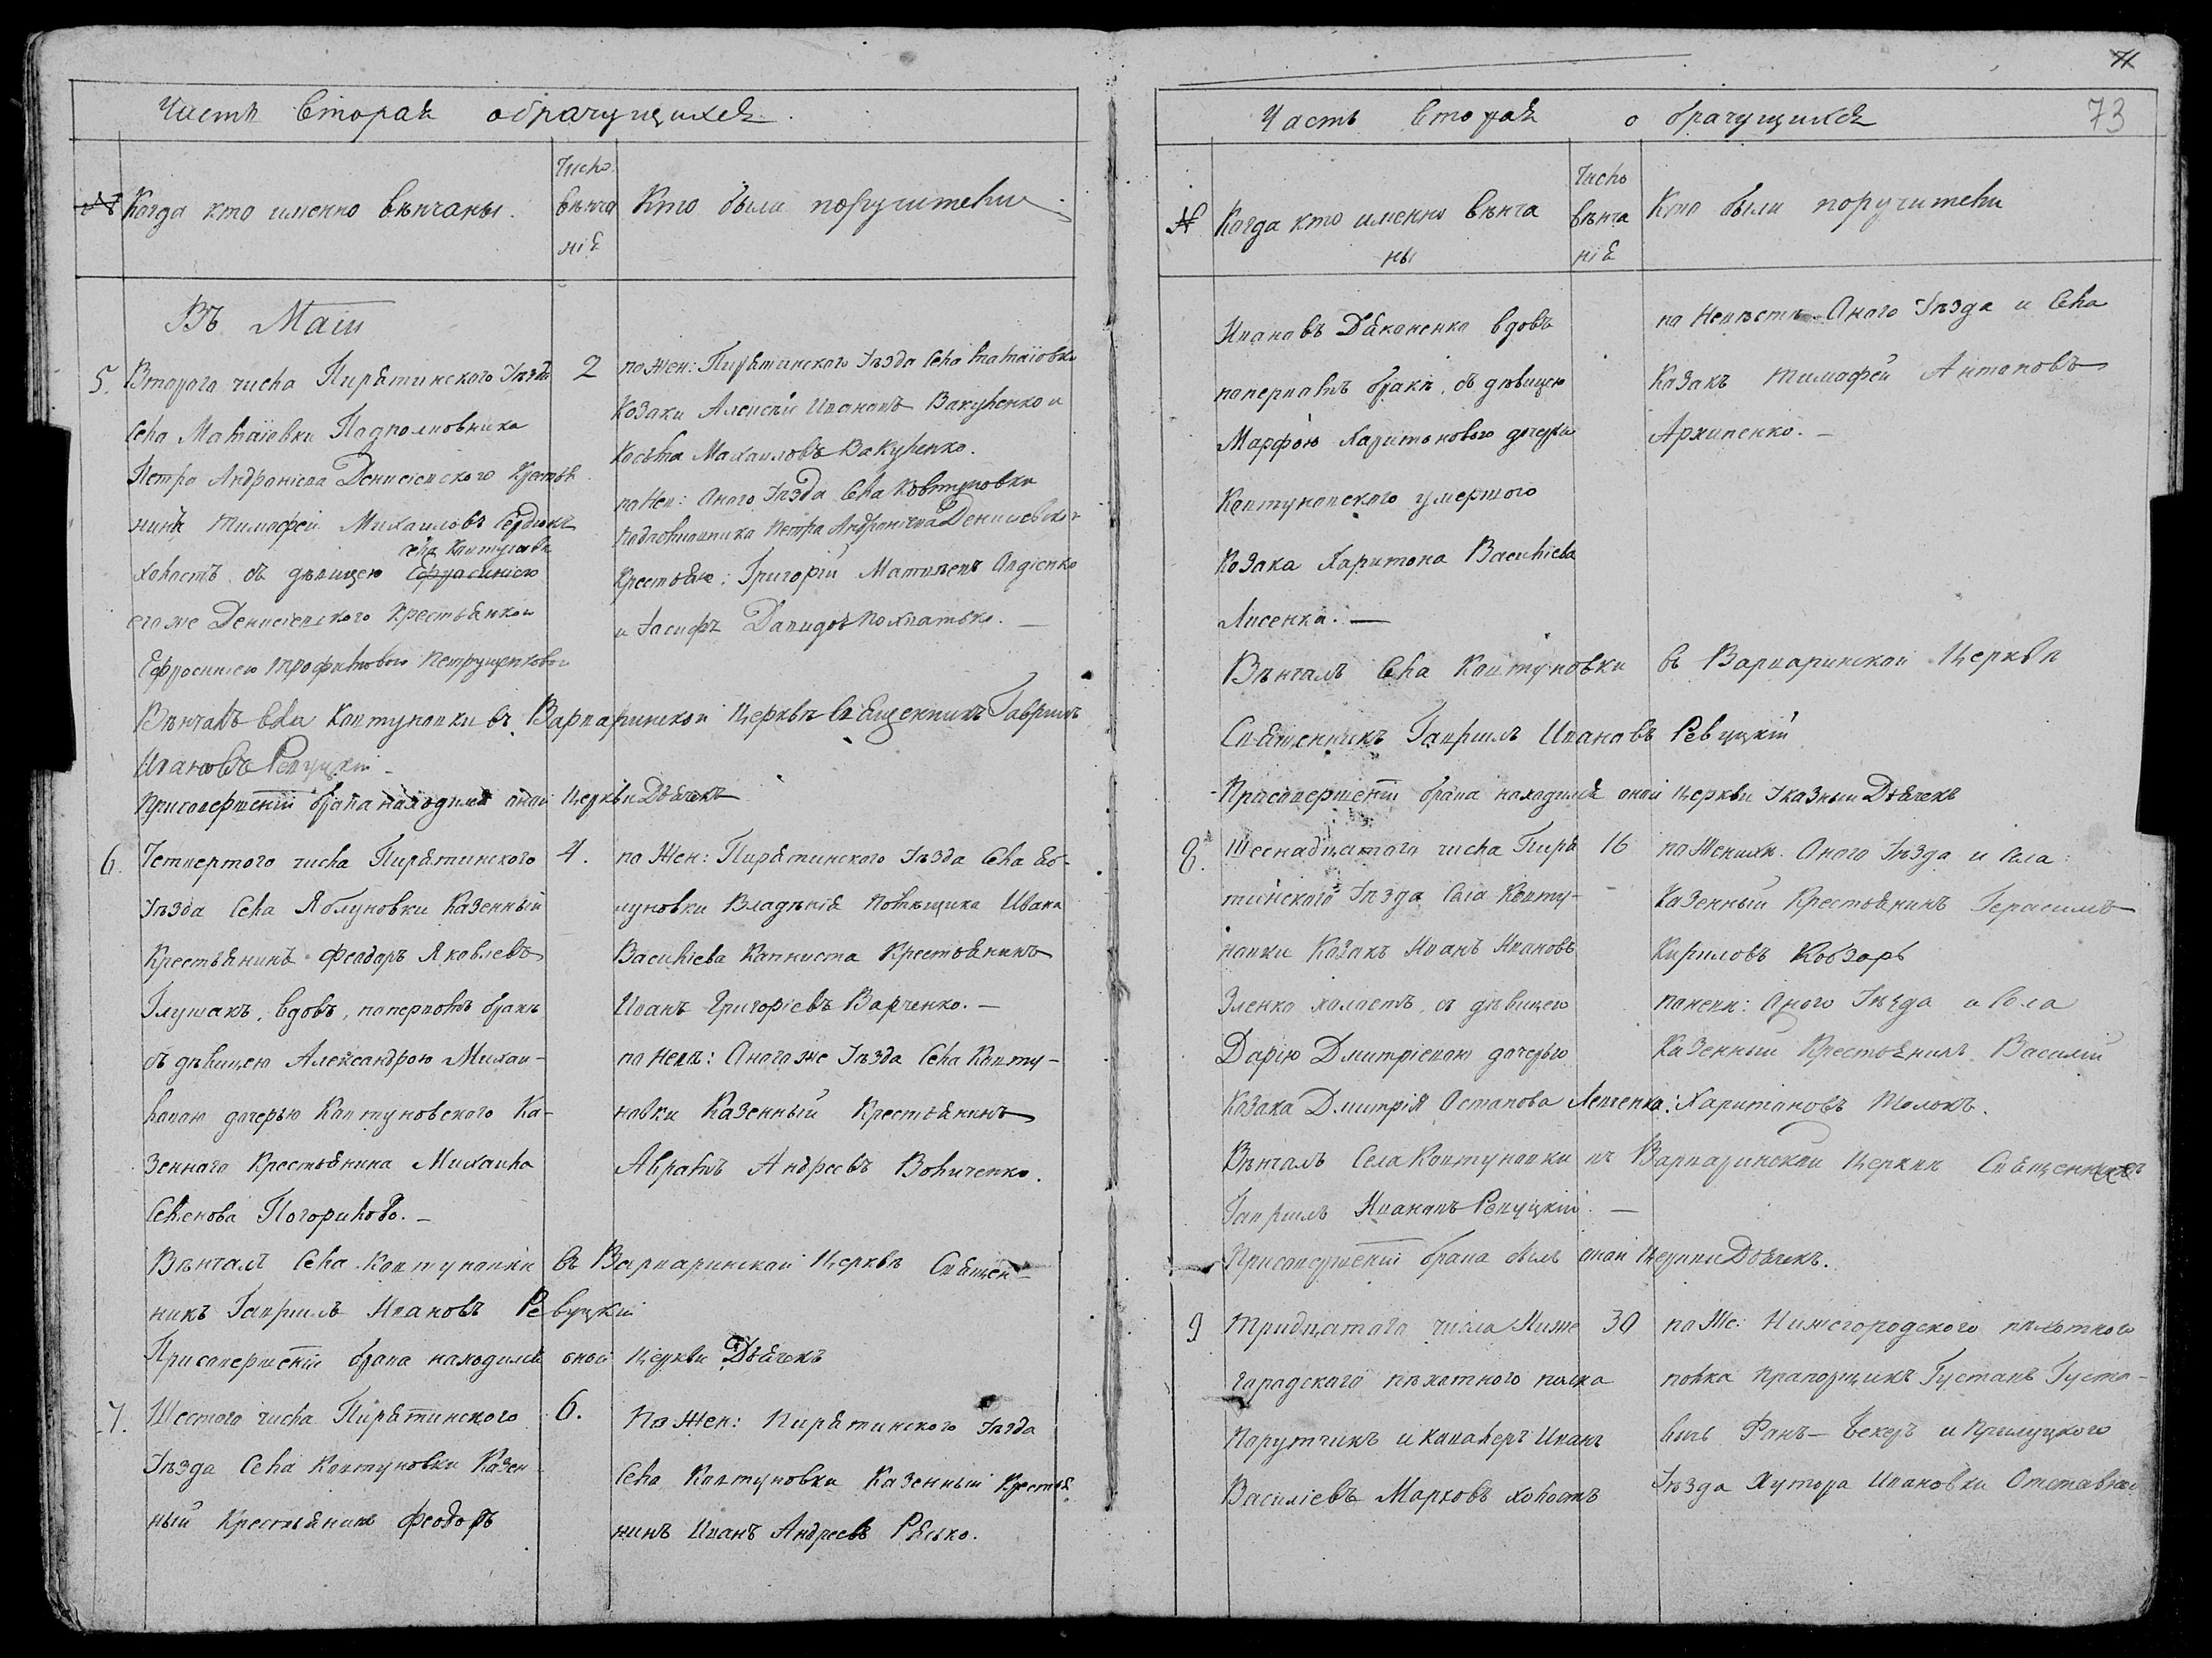 Часть Вторая обрачущихся.
№ Когда кто именно вѣнчаны.
Число вѣнча нiя
Кто были поручители.
Въ Маiи
5. Втораго числа Пирятинского Уѣзда
Села Малаiовки Подполковника
Петра Андронiева Денисiевского Крестья
нинъ Тимофей Михаиловъ Сердюкъ
села Колтуновки
холостъ съ дѣвицею Ефросинiею
егоже Денисiевского Крестьянкою
Ефросинiею Трофимовою Петрущенковою
2
по Жен: Пирятинского Уѣзда Села Малаiовки
Козаки Алексѣй Ивановъ Вакуленко и
Косьма Михаиловъ Вакуленко.
по Нев: Оного Уѣзда Села Ковтуновки
Подполковника Петра Андронiева Денисевског
Крестьяне: Григорiй Матвѣевъ Авдiенко
и Iосифъ Давидовъ Похватько. —
Вѣнчалъ Села Колтуновки въ Варваринской Церквѣ Священникъ Гаврiилъ
Ивановъ Ревуцкiй
Присовершенiи брака находился оной Церкви Дьячекъ
6. Четвертого числа Пирятинского
Уѣзда Села Яблуновки Казенный
Крестьянинъ Феодоръ Яковлевъ
Глушакъ, вдовъ, поперовомъ бракѣ
съ дѣвицею Александрою Михаи-
ловою дочерью Колтуновского Ка-
зенного Крестьянина Михаила
Семенова Погорилого. —
4.
по Жен: Пирятинского Уѣзда Села Яб-
луновки Владѣнiя Помѣщика Ивана
Василiева Капниста Крестьянинъ
Иванъ Григорiевъ Варченко. —
по Невѣ: Оногоже Уѣзда Села Колту-
новки Казенный Крестьянинъ
Авраамъ Андреевъ Воличенко.
Вѣнчалъ Села Колтуновки въ Варваринской Церквѣ Священ-
никъ Гаврiилъ Ивановъ Ревуцкiй
Присовершенiи брака находился оной Церкви Дьячекъ
7. Шестого числа Пирятинского
Уѣзда Села Колтуновки Казен
ный Крестьянинъ Феодоръ
6.
По Жен: Пирятинского Уѣзда
Села Колтуновки Казенный Крестья
нинъ Иванъ Андреевъ Рясько.
71
73
Часть Вторая о брачущихся
№ Когда кто именно вѣнча
ны
Число вѣнча нiя
Кто были поручители
Ивановъ Дяконенко вдовъ
поперовомъ бракѣ, съ дѣвицею
Марфою Харитоновою дочерью
Колтуновского умершого
Козака Харитона Василiева
Лисенка. —
по Невѣстѣ Оного Уѣзда и Села
Козакъ Тимофей Антоновъ
Архипенко. —
Вѣнчалъ Села Колтуновки въ Варваринской Церквѣ
Священникъ Гаврiилъ Ивановъ Ревуцкiй
Присовершенiи брака находился оной Церкви Указный Дьячекъ
8. Шеснадцатого числа Пиря
тинского Уѣзда Села Колту-
новки Козакъ Иванъ Ивановъ
Зленко холостъ, съ дѣвицею
Дарiю Дмитрiевою дочерью
Козака Дмитрiя Остапова Левченка:
16
по Женихѣ. Оного Уѣзда и Села:
Казенный Крестьянинъ Герасимъ
Кириловъ Кобзарь
поневѣ: Оного Уѣзда и Села
Казенный Крестьянинъ Василiй
Харитоновъ Толокъ.
Вѣнчалъ Села Колтуновки въ Варваринской Церкви Священникъ
Гаврiилъ Ивановъ Ревуцкiй. —
Присовершенiи брака былъ оной Церкви Дьячекъ.
9 Тридцатого числа Ниже
городского пѣхотного полка
Порутчикъ и кавалеръ Иванъ
Василiевъ Марковъ холостъ
30
по Же: Нижегородского пѣхотного
полка Прапорщикъ Густавъ Густа-
вычъ Фанъ-Бекеръ и Прилуцкого
Уѣзда Хутора Ивановки Отставной